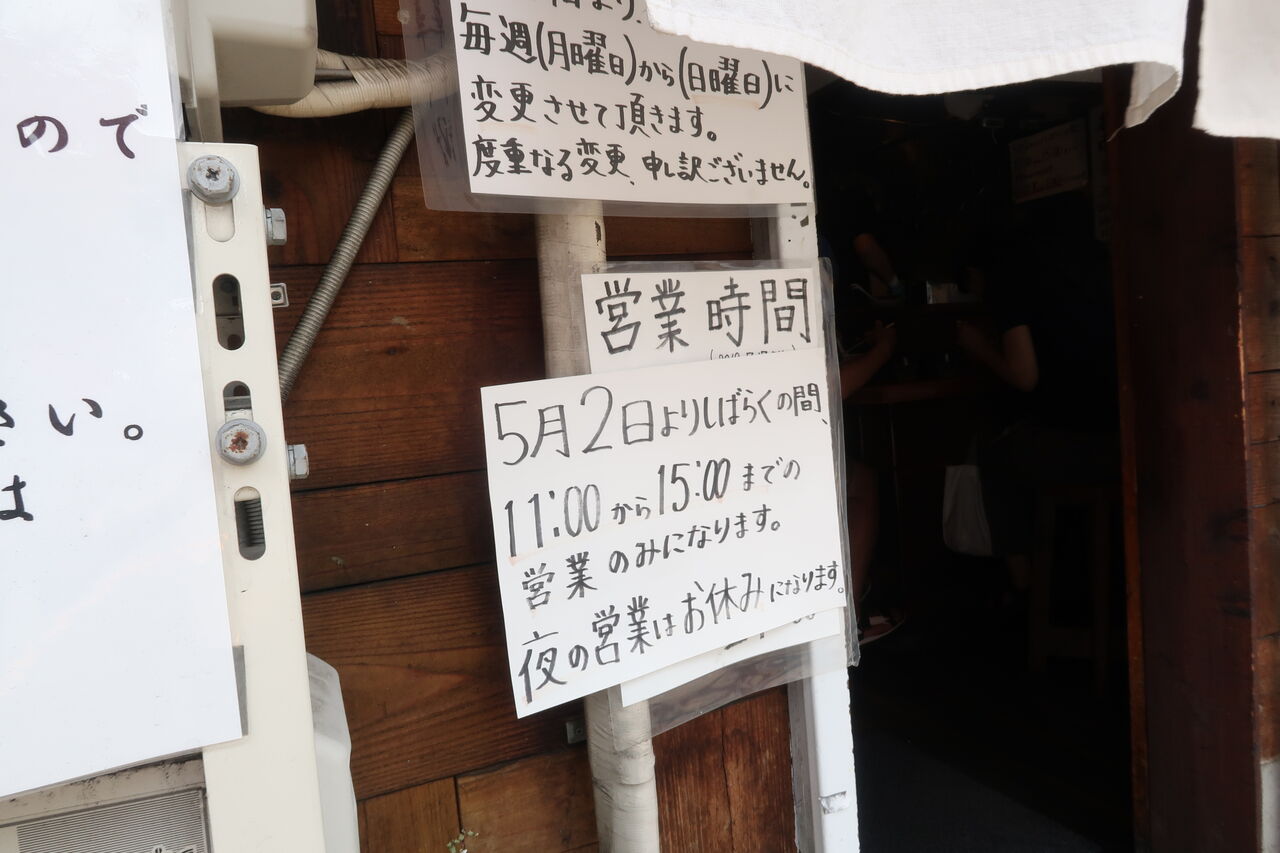 ので
い。
は
毎週(月曜日)から(日曜日)に
変更させて頂きます。
度重なる変更、申し訳ございません。
営業時間
5月2日よりしばらくの間、
11:00から15:00までの
営業のみになります。
夜の営業はお休みになります。